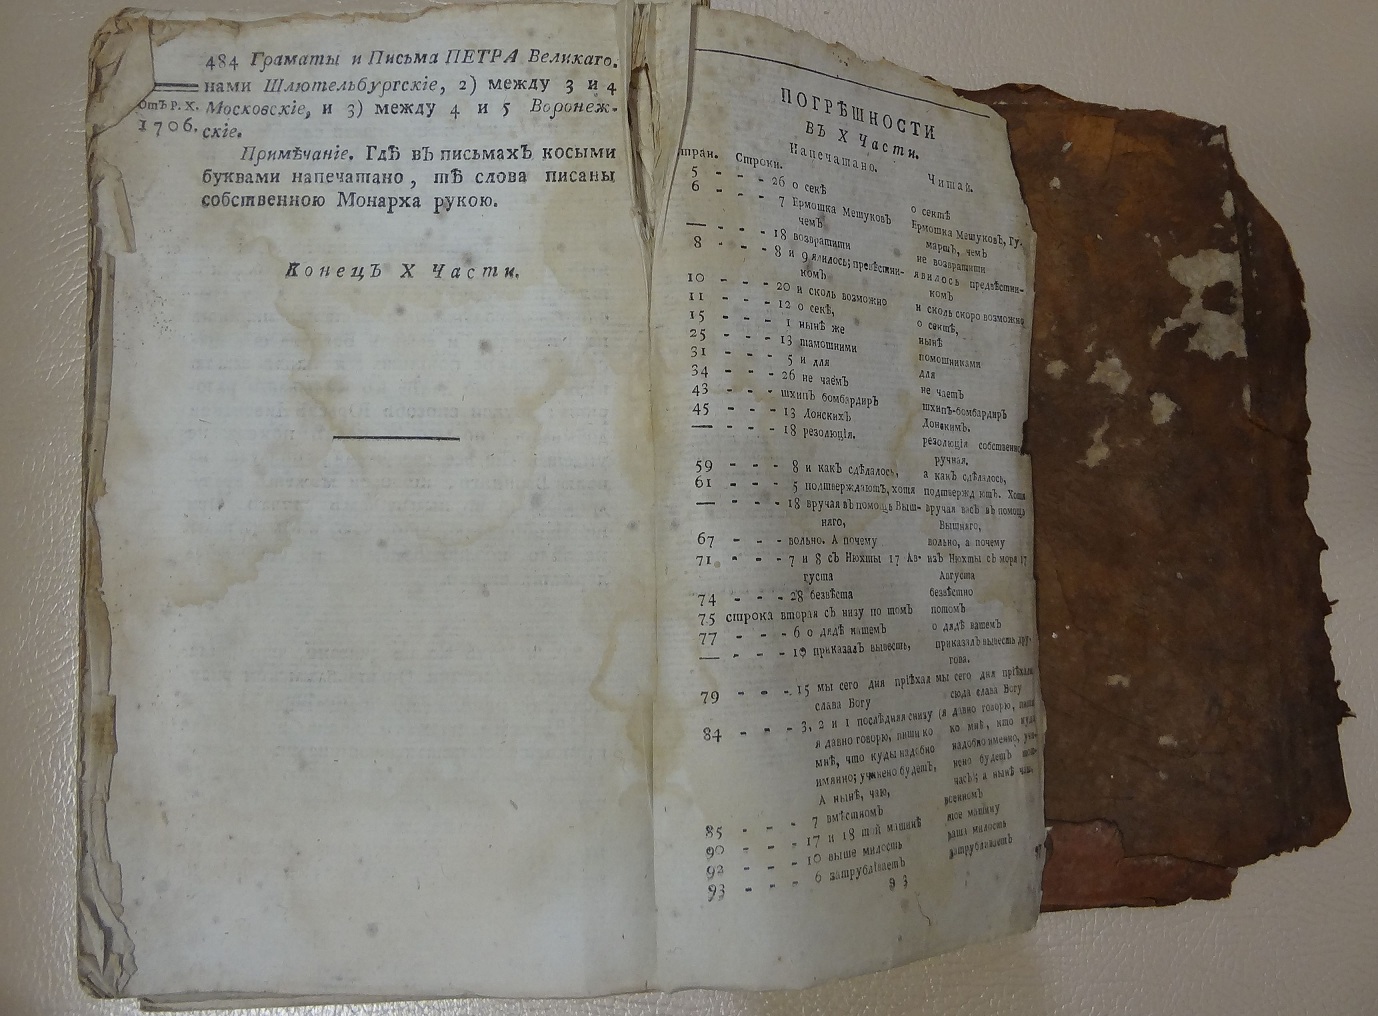 484 Граматы и Письма ПЕТРА Великаго.
нами Шлютельбургскіе, 2) между 3 и 4
отъ Р. Х. Московскіе, и 3) между 4 и 5 Воронеж-
1706. скіе.
Примѣчаніе. Гдѣ въ письмахъ косыми
буквами напечатано, тѣ слова писаны
собственною Монарха рукою.
Конецъ X Части.
ПОГРѢШНОСТИ
въ X Части.
стран. Строки. Напечатано. Читай.
5 - - - 26 о секѣ о сектѣ
6 - - - 7 Ермошка Мешуковъ Ермошка Мешуковъ, Гу-
чемъ маршъ, чемъ
— - - - 18 возвратити не возвратити
8 - - - 8 и 9 явилось; превѣстни- явилось предвѣстни-
комъ комъ
10 - - - 20 и сколь возможно и сколь скоро возможно
11 - - - 12 о секѣ, о сектѣ,
15 - - - 1 нынѣ же нынѣ
25 - - - 13 тамошними помошниками
31 - - - 5 и для для
34 - - - 26 не чаемъ не чаетъ
43 - - - шхипъ бомбардиръ шхипъ-бомбардиръ
45 - - - 13 Донскихъ Донскимъ.
— - - - 18 резолюція. резолюція собственно
ручная.
59 - - - 8 и какъ сдѣлалось, а какъ сдѣлалось,
61 - - - 5 подтверждаютъ, хотя Хотя
— - - - 18 вручая въ помощь Выш- вручая васъ въ помощь
няго, Вышняго,
67 - - - вольно. А почему вольно, а почему
71 - - - 7 и 8 съ Нюхты 17 Ав- изъ Нюхты съ моря 17
густа Августа
74 - - - 28 безвѣста безвѣстно
75 строка вторая съ низу по томъ потомъ
77 - - - 6 о дядѣ нашемъ о дядѣ вашемъ
— - - - 19 приказалъ вывесть, приказалъ вывесть дру-
гова.
79 - - - 15 мы сего дня пріѣхали мы сего дня пріѣхали
слава Богу сюда слава Богу
84 - - - 3, 2 и 1 послѣдняя снизу (я давно говорю, пиши
я давно говорю, пиши ко ко мнѣ, кто куда
мнѣ, что куды надобно надобно именно, учи-
имянно; учинено будетъ, нено будетъ
А нынѣ, чаю,
85 - - - 7 вмѣстномъ
90 - - - 17 и 18 той машинѣ тое машину
92 - - - 10 выше милость ваша милость
93 - - - 6 затрубливаетъ
93